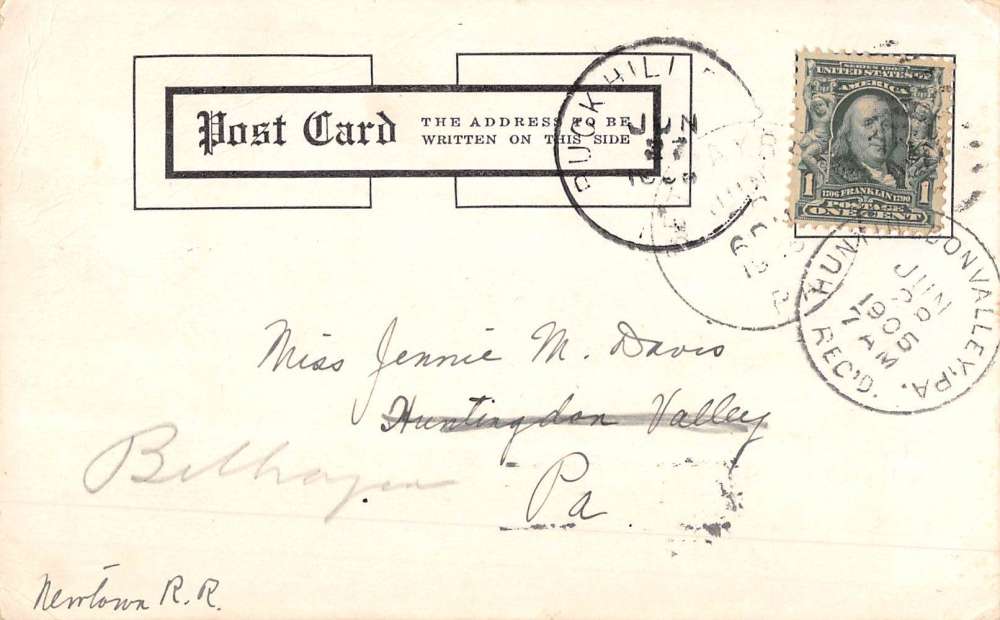 Post Card
THE ADDRESS TO BE
WRITTEN ON THIS SIDE
BUCK HILL
SERIES 1902
UNITED STATES OF
AMERICA
1 1706 FRANKLIN 1790 1
POSTAGE
ONE CENT
JUN
1905
7 AM
REC'D.
DONVALLEY, PA.
Miss Jennie M. Davis
Huntingdon Valley
Pa.
Newtown R.R.